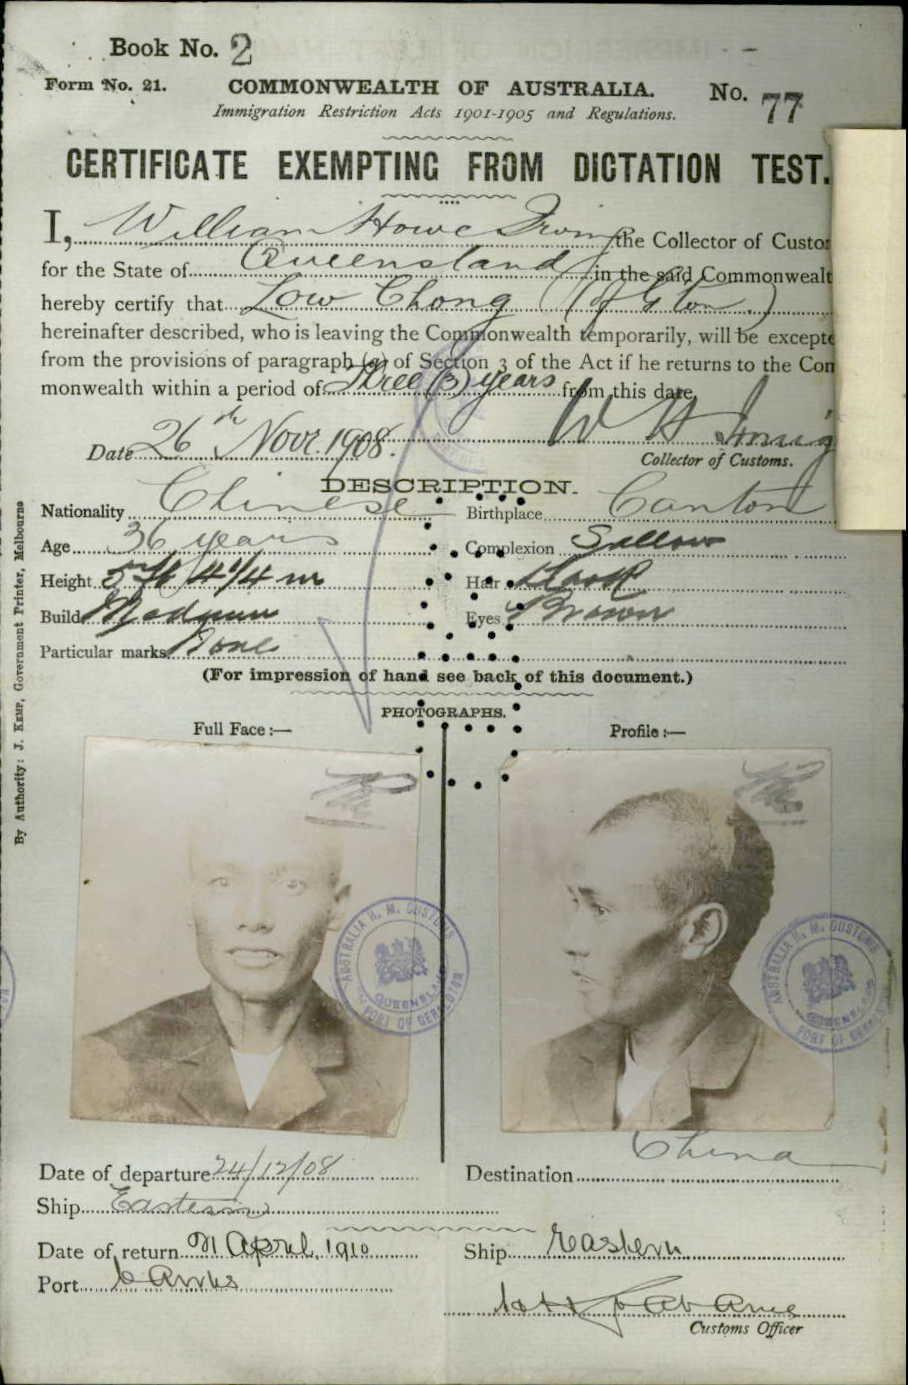 Book No. 2
Form No. 21. COMMONWEALTH OF AUSTRALIA. No. 77
Immigration Restriction Acts 1901-1905 and Regulations.
CERTIFICATE EXEMPTING FROM DICTATION TEST.
I, William Howe Irving the Collector of Custo
for the State of Queensland in the said Commonwealt
hereby certify that Low Chong (of G'ton)
hereinafter described, who is leaving the Commonwealth temporarily, will be excepte
from the provisions of paragraph (a) of Section 3 of the Act if he returns to the Com
monwealth within a period of Three (3) years from this date.
W H Irving
Date 26th Novr. 1908.
Collector of Customs.
DESCRIPTION.
Nationality Chinese Birthplace Canton
Age 36 years Complexion Sallow
Height 5 ft 4 1/4 in Hair Dark
Build Medium Eyes Brown
Particular marks None
(For impression of hand see back of this document.)
PHOTOGRAPHS.
Full Face :— Profile :—
AUSTRALIA H. M. CUSTOMS QUEENSLAND PORT OF GERALDTON
AUSTRALIA H. M. CUSTOMS QUEENSLAND PORT OF GERALDTON
Date of departure 24/12/08 Destination China
Ship Eastern
Date of return 21 April, 1910 Ship Eastern
Port Cairns
Customs Officer
By Authority: J. KEMP, Government Printer, Melbourne